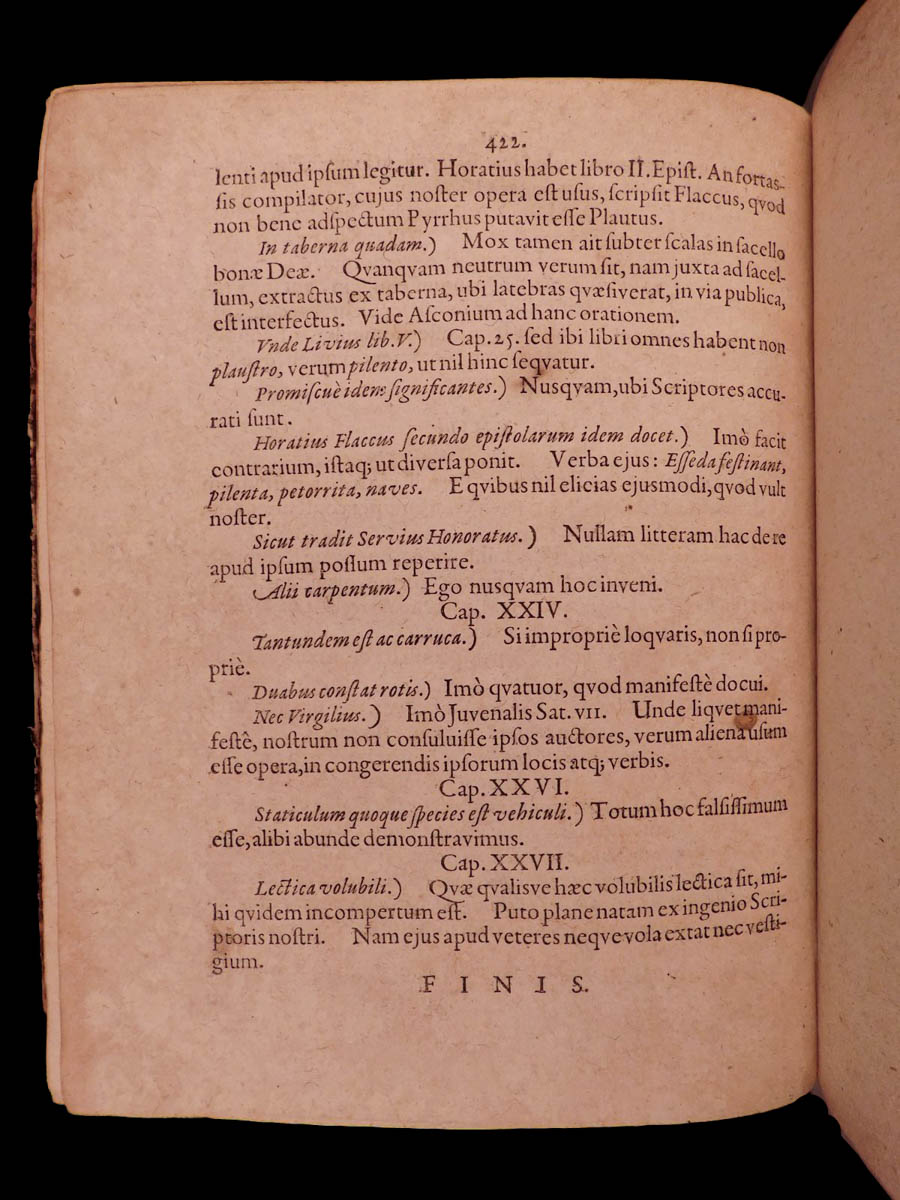 422.
lenti apud ipſum legitur. Horatius habet libro II. Epiſt. An fortaſ-
ſis compilator, cujus noſter opera eſt uſus, ſcripſit Flaccus, qvod
non bene adſpectum Pyrrhus putavit eſſe Plautus.
In taberna quadam.) Mox tamen ait ſubter ſcalas in ſacello
bonæ Deæ. Qvanqvam neutrum verum ſit, nam juxta ad ſacel-
lum, extractus ex taberna, ubi latebras qvæſiverat, in via publica,
eſt interfectus. Vide Aſconium ad hanc orationem.
Vnde Livius lib. V.) Cap. 25. ſed ibi libri omnes habent non
plauſtro, verum pilento, ut nil hinc ſeqvatur.
Promiſcuè idem ſignificantes.) Nusqvam, ubi Scriptores accu-
rati ſunt.
Horatius Flaccus ſecundo epiſtolarum idem docet.) Imò facit
contrarium, iſtaq; ut diverſa ponit. Verba ejus: Eſſeda feſtinant,
pilenta, petorrita, naves. E qvibus nil elicias ejusmodi, qvod vult
noſter.
Sicut tradit Servius Honoratus.) Nullam litteram hac de re
apud ipſum poſſum reperire.
Alii carpentum.) Ego nusqvam hoc inveni.
Cap. XXIV.
Tantundem eſt ac carruca.) Si impropriè loqvaris, non ſi pro-
priè.
Duabus conſtat rotis.) Imò qvatuor, qvod manifeſtè docui.
Nec Virgilius.) Imò Juvenalis Sat. VII. Unde liqvet mani-
feſtè, noſtrum non conſuluiſſe ipſos auctores, verum aliena uſum
eſſe opera, in congerendis ipſorum locis atq; verbis.
Cap. XXVI.
Staticulum quoque ſpecies eſt vehiculi.) Totum hoc falſiſſimum
eſſe, alibi abunde demonſtravimus.
Cap. XXVII.
Lectica volubili.) Qvæ qvalisve hæc volubilis lectica ſit, mi-
hi qvidem incompertum eſt. Puto plane natam ex ingenio Scri-
ptoris noſtri. Nam ejus apud veteres neqve vola extat nec veſti-
gium.
F I N I S.